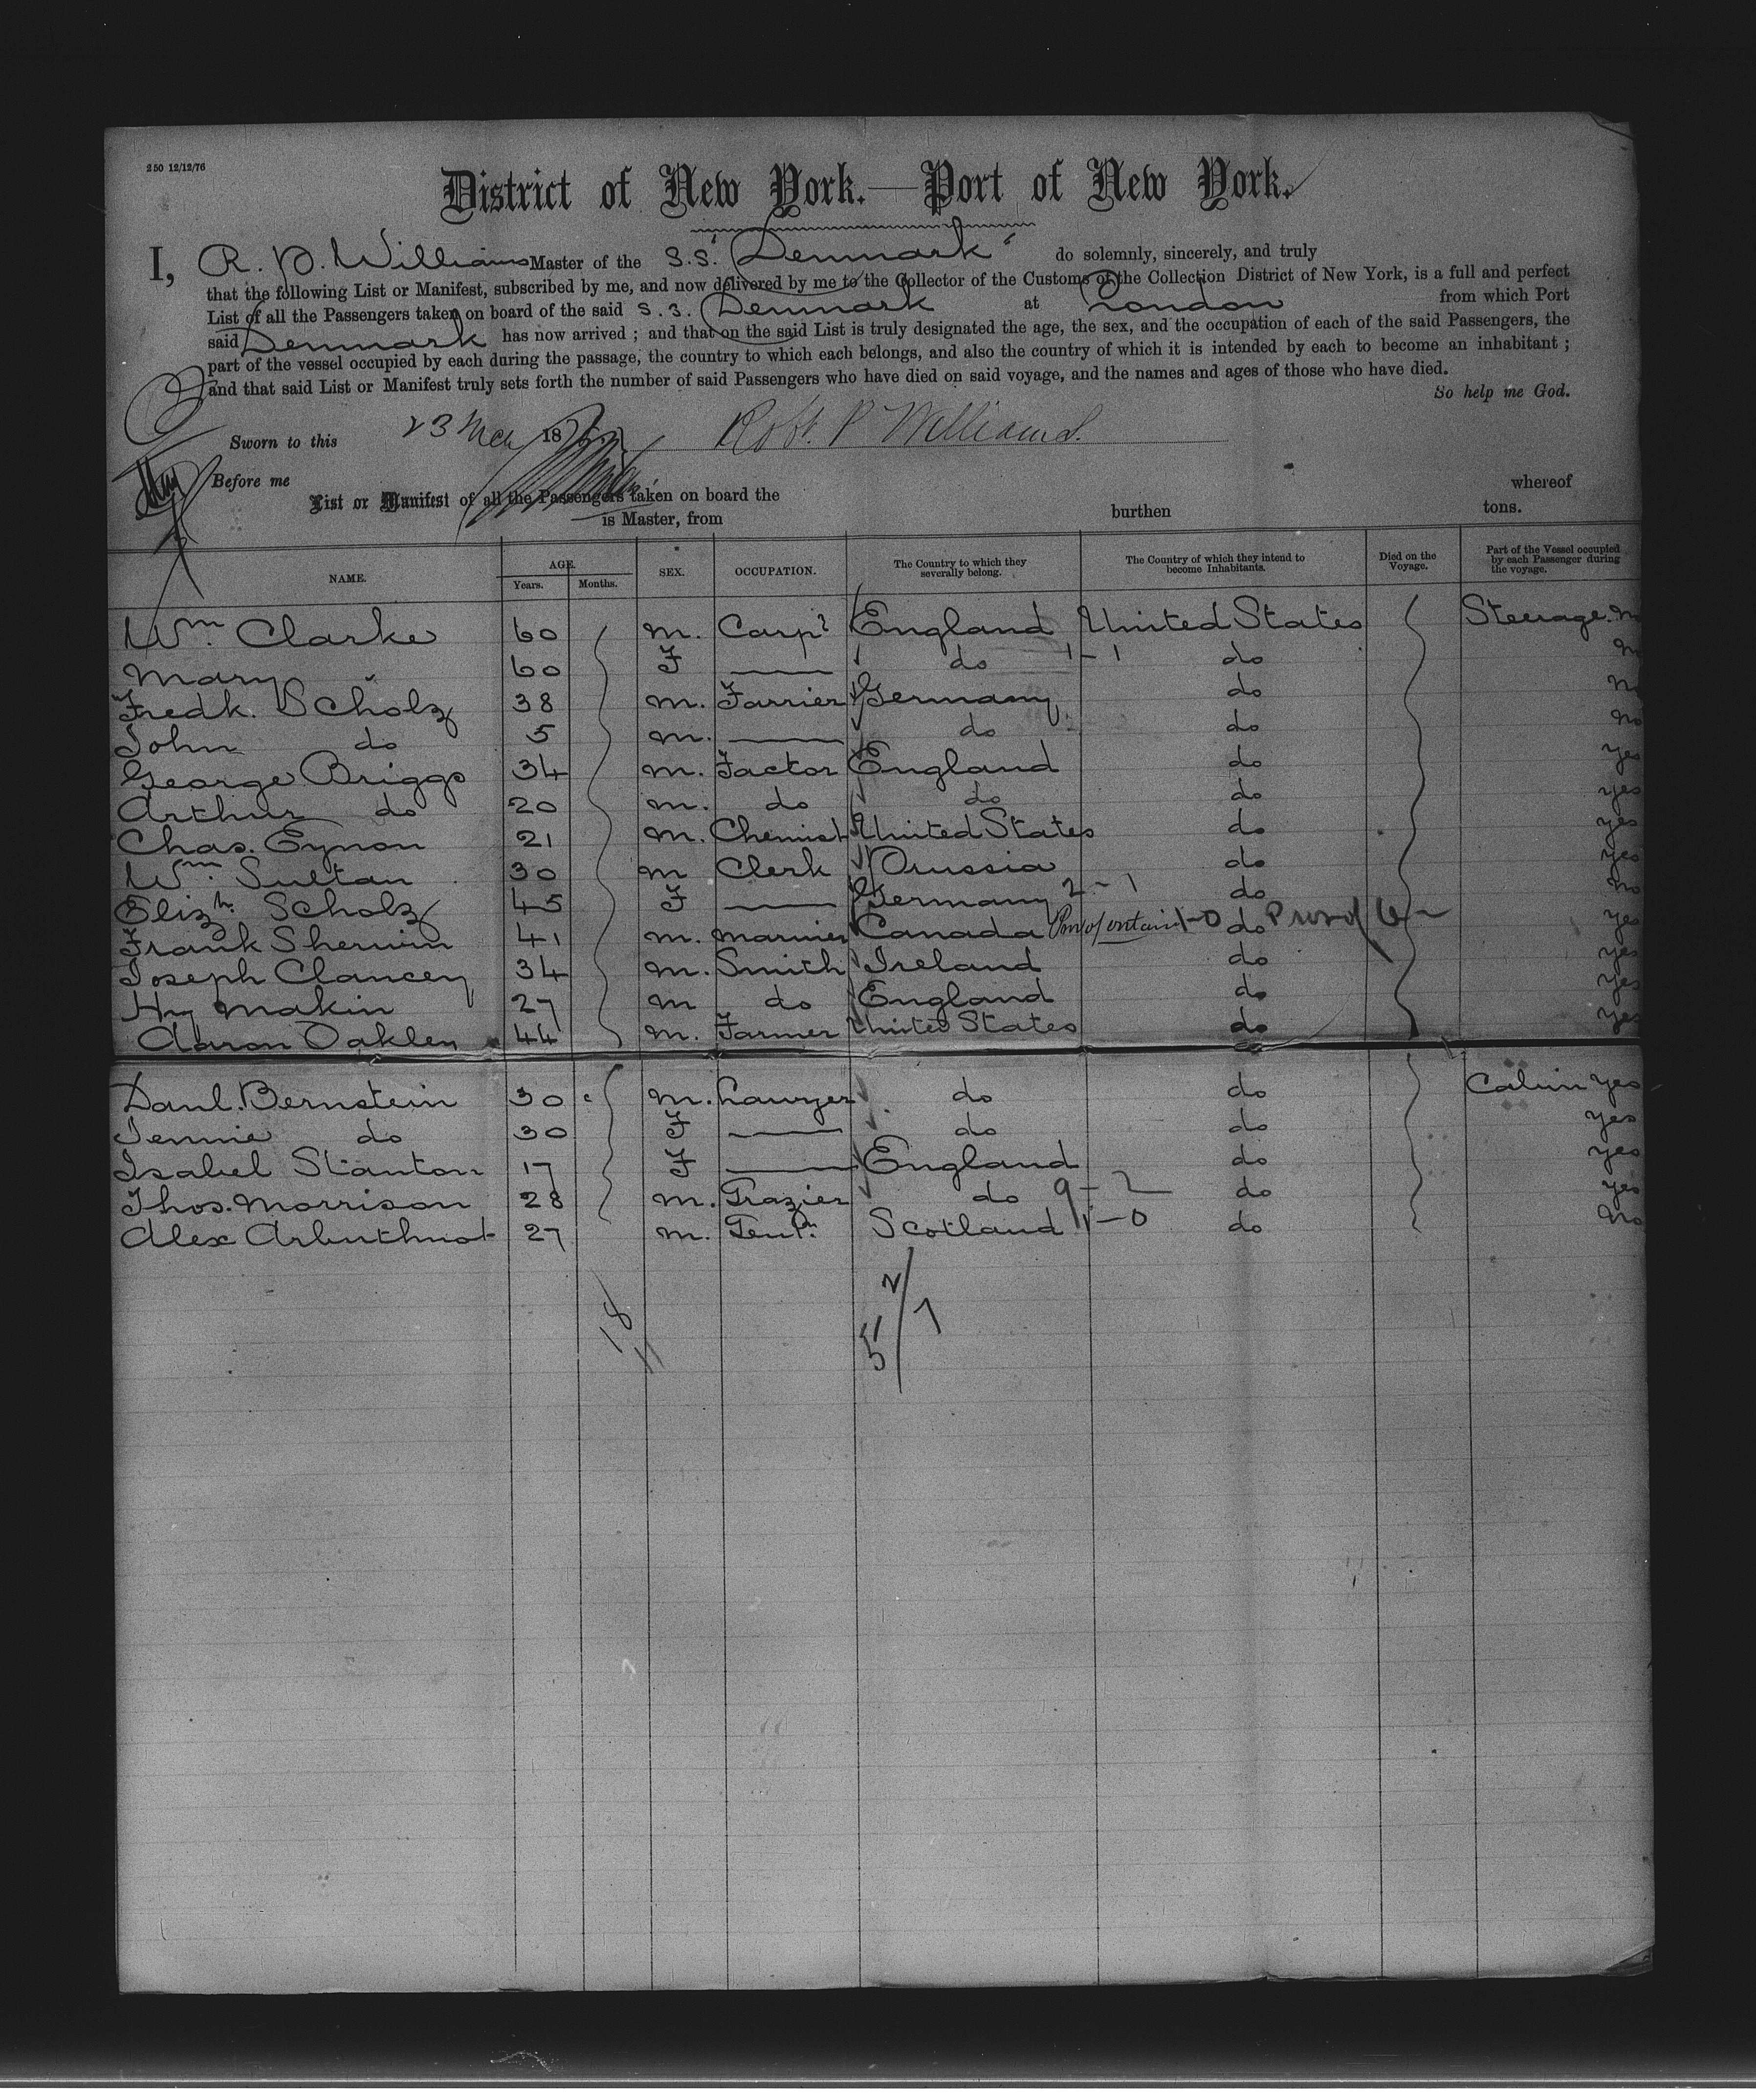 250 12/12/76
District of New York.—Port of New York.
I, R. P. Williams Master of the S.S. "Denmark" do solemnly, sincerely, and truly
that the following List or Manifest, subscribed by me, and now delivered by me to the Collector of the Customs of the Collection District of New York, is a full and perfect
List of all the Passengers taken on board of the said S.S. Denmark at London from which Port
said Denmark has now arrived ; and that on the said List is truly designated the age, the sex, and the occupation of each of the said Passengers, the
part of the vessel occupied by each during the passage, the country to which each belongs, and also the country of which it is intended by each to become an inhabitant ;
and that said List or Manifest truly sets forth the number of said Passengers who have died on said voyage, and the names and ages of those who have died.
So help me God.
Sworn to this 23 18 Robt. P Williams.
Before me whereof
List or Manifest of all the Passengers taken on board the
is Master, from burthen tons.
NAME. AGE. Years. Months. SEX. OCCUPATION. The Country to which they severally belong. The Country of which they intend to become Inhabitants. Died on the Voyage. Part of the Vessel occupied by each Passenger during the voyage.
Wm. Clarke 60 M. Carpr England United States Steerage. No
Mary 60 F — do 1-1 do No
Fredk. Scholz 38 M. Farrier Germany do No
John do 5 M. — do do No
George Briggs 34 M. Factor England do yes
Arthur do 20 M. do do do yes
Chas. Eynon 21 M. Chemist United States do yes
Wm. Sultan 30 M Clerk Prussia do yes
Elizh. Scholz 45 F — Germany 2-1 do No
Frank Sherwin 41 M. Mariner Canada 1-0 do yes
Joseph Clancey 34 M. Smith Ireland do yes
Hy Makin 27 M do England do yes
Aaron Oakley 44 M. Farmer United States do yes
Danl. Bernstein 30 M. Lawyer do do Cabin yes
Jennie do 30 F — do do yes
Isabel Stanton 17 F — England do yes
Thos. Morrison 28 M. Grazier do 9-2 do yes
Alex Arbuthnot 27 M. Gentn. Scotland 1-0 do No
18
2
5 / 7